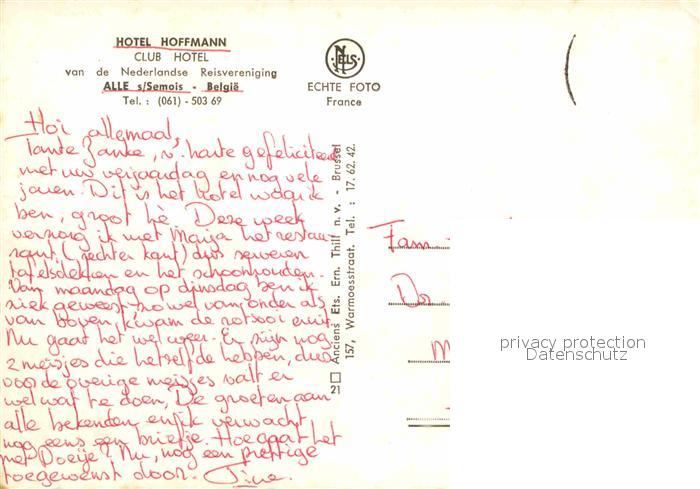 HOTEL HOFFMANN
CLUB HOTEL
van de Nederlandse Reisvereniging
ALLE s/Semois - België
Tel. : (061) - 503 69
NELS
ECHTE FOTO
France
Hoi allemaal,
Tante Janke, v. harte gefeliciteerd
met uw verjaardag en nog vele
jaren. Dit is het hotel waar ik
ben, groot hè. Deze week
verzorg ik met Marja het restau-
rant, (rechter kant) dus serveren
tafelsdekken en het schoonhouden.
Van maandag op dinsdag ben ik
ziek geweest, zowel van onder als
van boven, kwam de rotzooi eruit.
Nu gaat het wel weer. Er zijn nog
2 meisjes die hetzelfde hebben, dus
voor de overige meisjes valt er
wel wat te doen. De groeten aan
alle bekenden en ik verwacht
nog eens een briefje. Hoe gaat het
met Doeije? Nu, nog een prettige
toegewenst door. Tine.
Anciens Ets. Ern. Thill n. v. - Brussel
157, Warmoesstraat. Tel. : 17.62.42.
21
Fam
De
M
privacy protection
Datenschutz